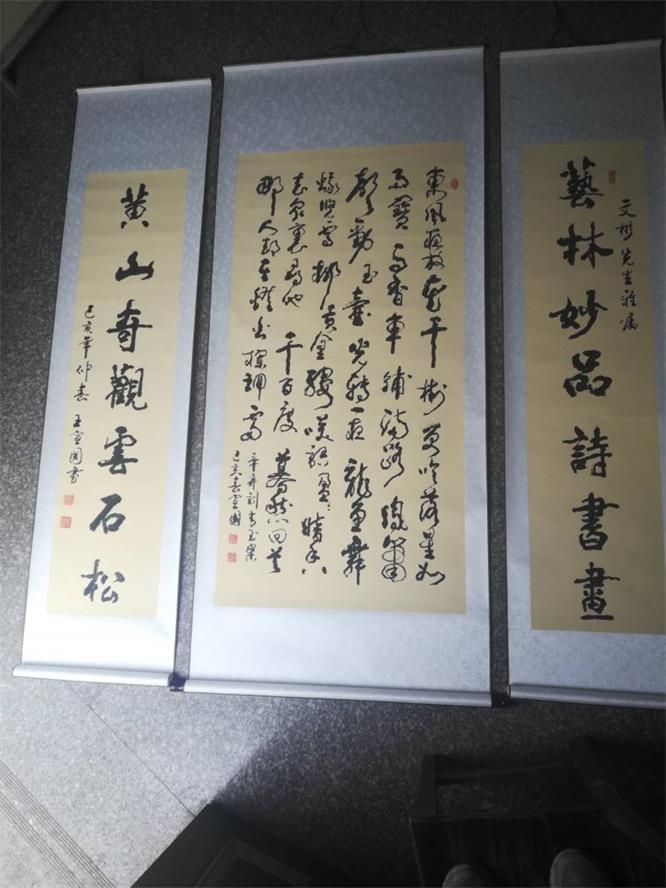 藝林妙品詩書畫
文彬先生雅属
東風夜放花千樹更吹落星如
雨寶馬香車鋪滿路鳳簫
聲動玉壺光轉一夜龍魚舞
蛾兒雪柳黃金縷笑語盈盈暗香
去衆裏尋他千百度驀然回首
那人却在燈火闌珊處
辛弃疾青玉案
己亥春宣國
黄山奇觀雲石松
己亥年仲春王宣國書